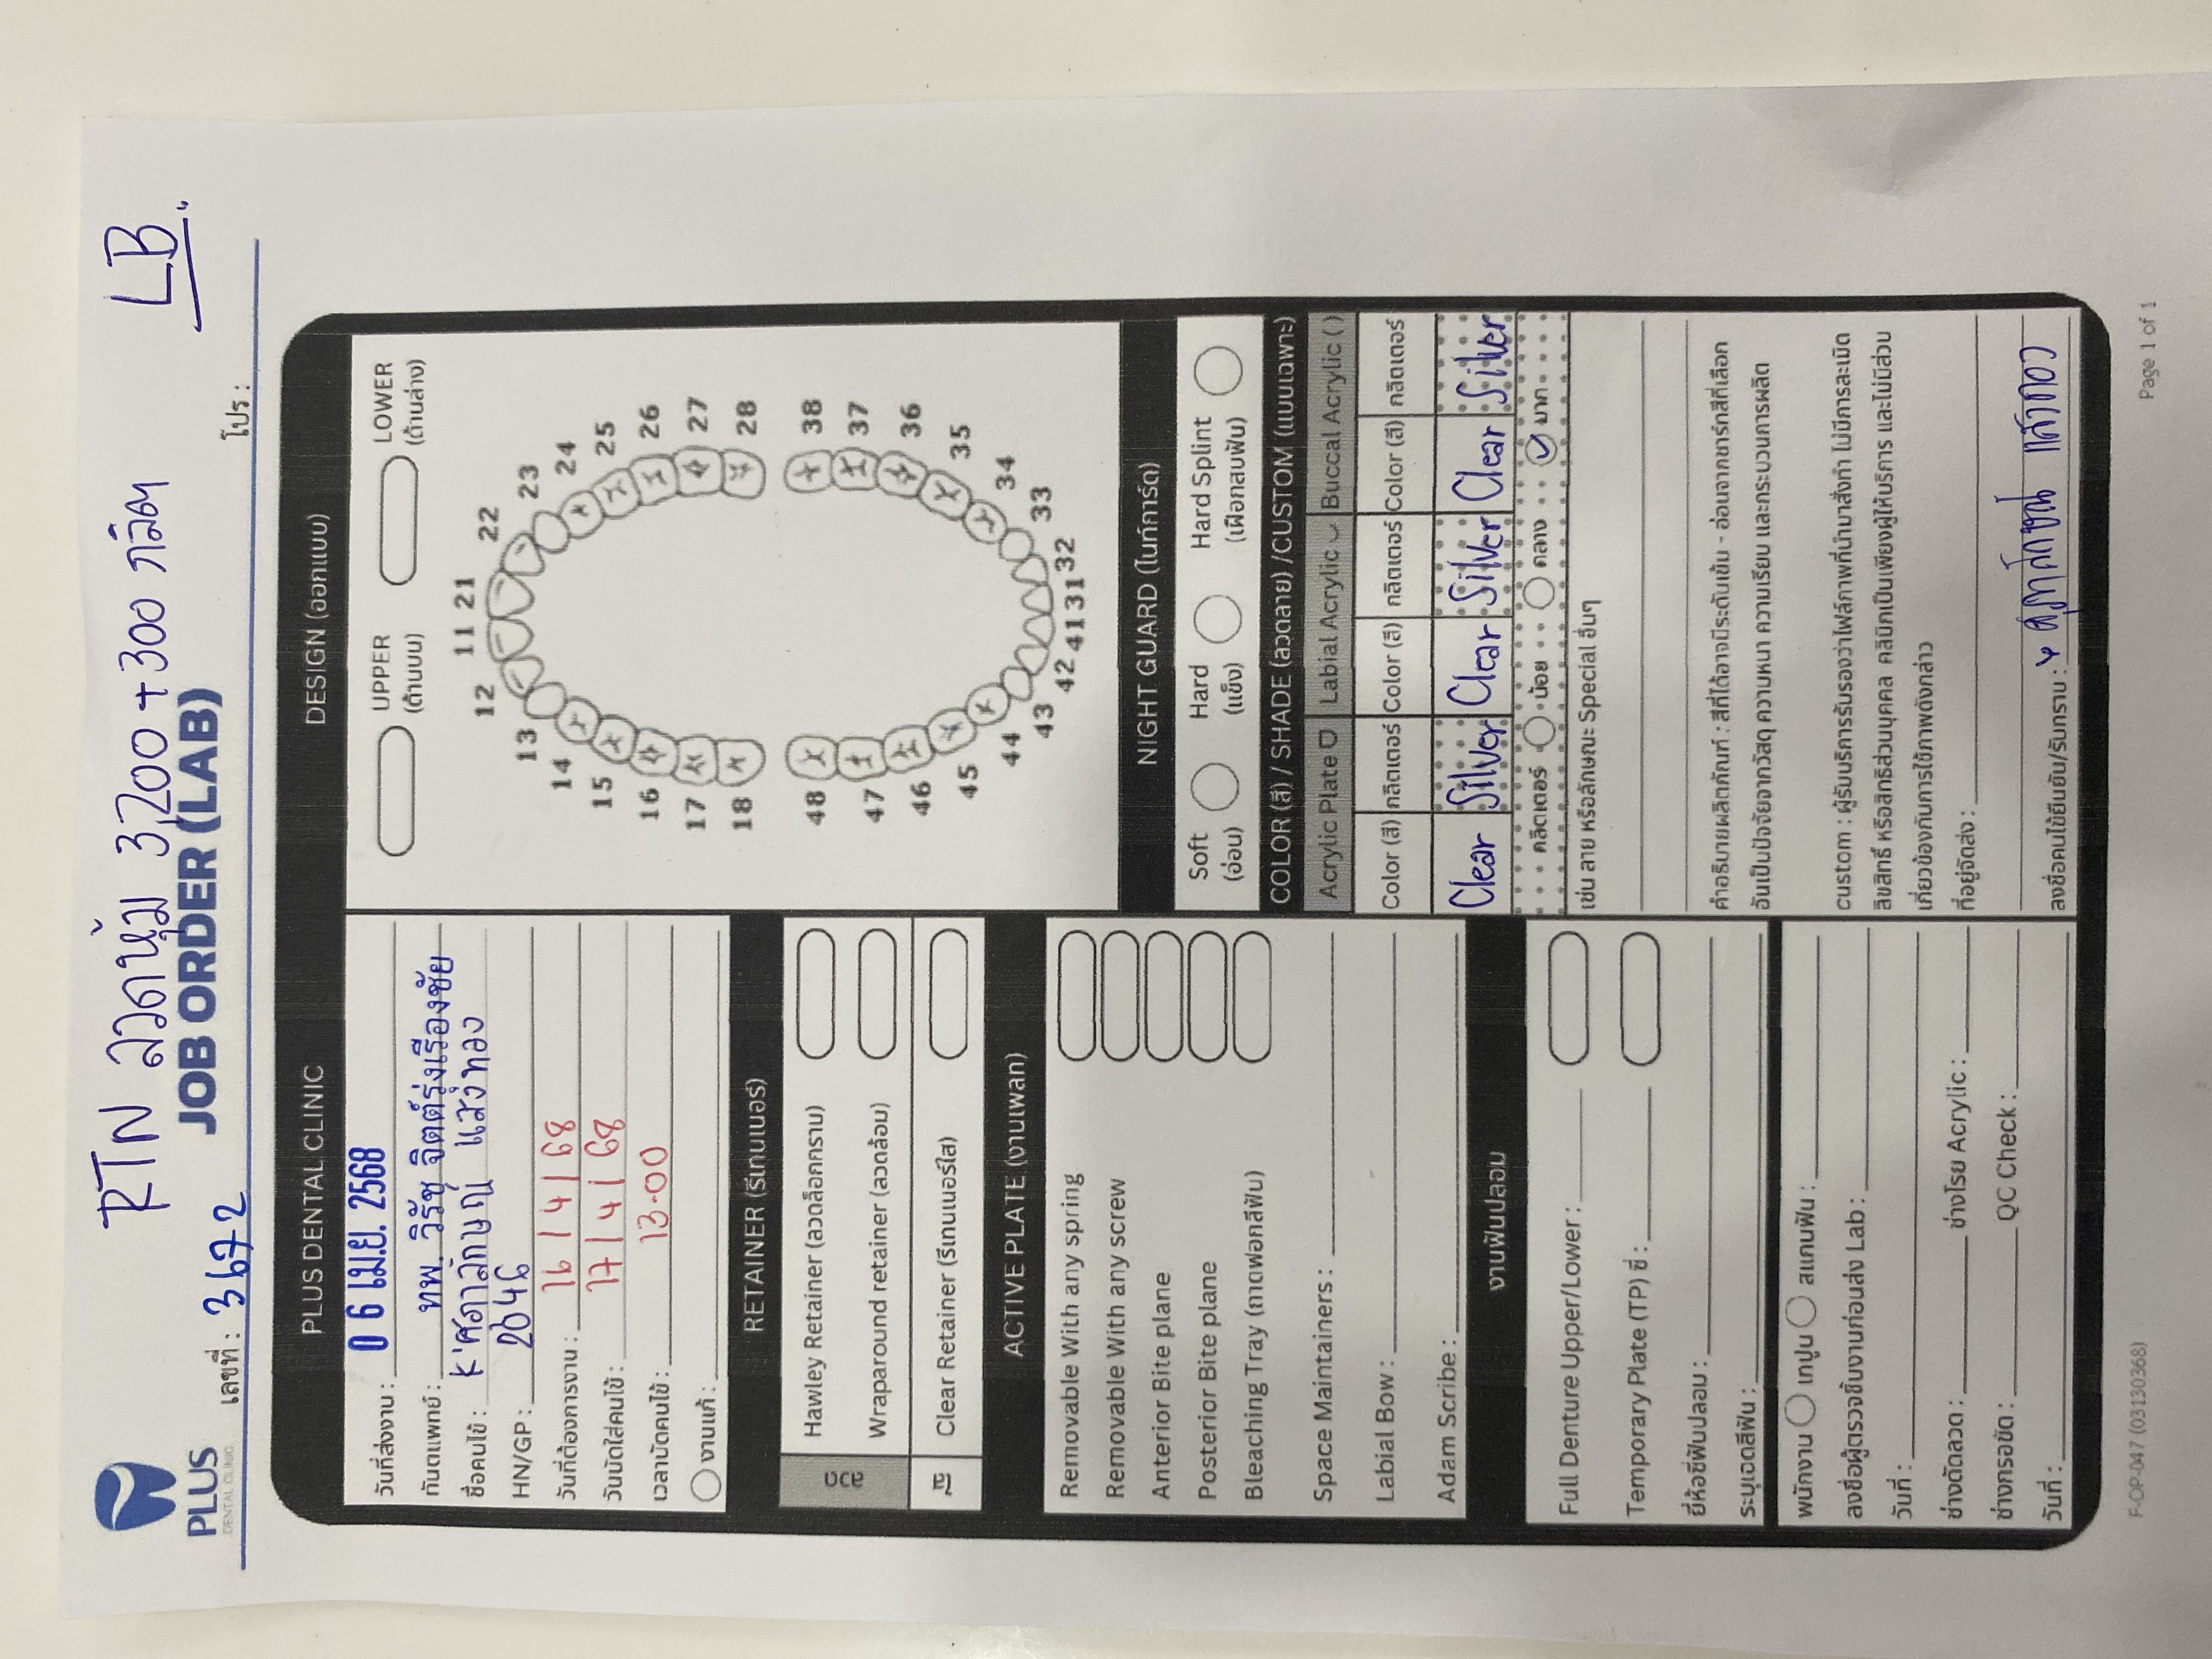 RTN ลวดหุ้ม 3,200 + 300 กลิต LB
PLUS
DENTAL CLINIC
JOB ORDER (LAB)
เลขที่ : 3672
โปร :
PLUS DENTAL CLINIC
วันที่ส่งงาน : 06 เม.ย. 2568
ทันตแพทย์ : ทพ. วิรัช จิตต์รุ่งเรืองชัย
ชื่อคนไข้ : K'ศุภาลักษณ์ แสงทอง
HN/GP : 2046
วันที่ต้องการงาน : 16 / 4 / 68
วันนัดใส่คนไข้ : 17 / 4 / 68
เวลานัดคนไข้ : 13.00
งานแก้ :
RETAINER (รีเทนเนอร์)
ลวด
Hawley Retainer (ลวดล็อกกราม)
Wraparound retainer (ลวดล้อม)
ใส
Clear Retainer (รีเทนเนอร์ใส)
ACTIVE PLATE (งานเพลท)
Removable With any spring
Removable With any screw
Anterior Bite plane
Posterior Bite plane
Bleaching Tray (ถาดฟอกสีฟัน)
Space Maintainers :
Labial Bow :
Adam Scribe :
งานฟันปลอม
Full Denture Upper/Lower :
Temporary Plate (TP) ซี่ :
ยี่ห้อซี่ฟันปลอม :
ระบุเฉดสีฟัน :
พนักงาน เทปูน สแกนฟัน :
ลงชื่อผู้ตรวจชิ้นงานก่อนส่ง Lab :
วันที่ :
ช่างดัดลวด : ช่างโรย Acrylic :
ช่างกรอขัด : QC Check :
วันที่ :
DESIGN (ออกแบบ)
UPPER
(ด้านบน)
LOWER
(ด้านล่าง)
11 21
12 22
13 23
14 24
15 25
16 26
17 27
18 28
48 38
47 37
46 36
45 35
44 34
43 33
42 41 31 32
NIGHT GUARD (ไนท์การ์ด)
Soft
(อ่อน)
Hard
(แข็ง)
Hard Splint
(เฝือกสบฟัน)
COLOR (สี) / SHADE (ลวดลาย) /CUSTOM (แบบเฉพาะ)
Acrylic Plate Labial Acrylic Buccal Acrylic ( )
Color (สี) กลิตเตอร์ Color (สี) กลิตเตอร์ Color (สี) กลิตเตอร์
Clear Silver Clear Silver Clear Silver
กลิตเตอร์ น้อย กลาง มาก
เช่น ลาย หรือลักษณะ Special อื่นๆ
คำอธิบายผลิตภัณฑ์ : สีที่ได้อาจมีระดับเข้ม - อ่อนจากชาร์ทสีที่เลือก
อันเป็นปัจจัยจากวัสดุ ความหนา ความเรียบ และกระบวนการผลิต
custom : ผู้รับบริการรับรองว่าไฟล์ภาพที่นำมาสั่งทำ ไม่มีการละเมิด
ลิขสิทธิ์ หรือสิทธิส่วนบุคคล คลินิกเป็นเพียงผู้ให้บริการ และไม่มีส่วน
เกี่ยวข้องกับการใช้ภาพดังกล่าว
ที่อยู่จัดส่ง :
ลงชื่อคนไข้ยืนยัน/รับทราบ : ศุภาลักษณ์ แสงทอง
F-OP-047 (03130368)
Page 1 of 1